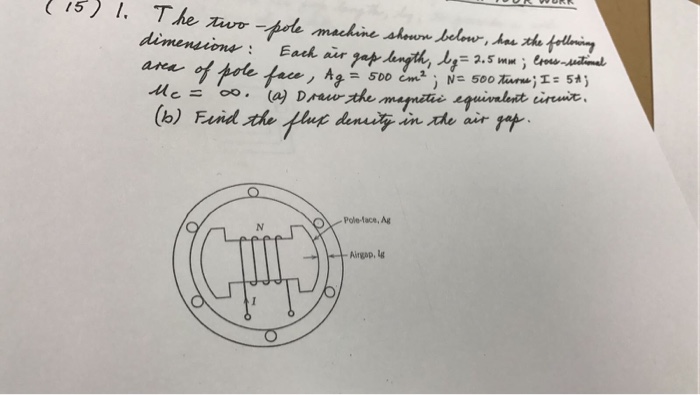 (15) 1. The two-pole machine shown below, has the following
dimensions: Each air gap length, lg = 2.5 mm; Cross-sectional
area of pole face, Ag = 500 cm²; N = 500 turns; I = 5A;
μc = ∞. (a) Draw the magnetic equivalent circuit.
(b) Find the flux density in the air gap.
N
Pole-face, Ag
Airgap, lg
I